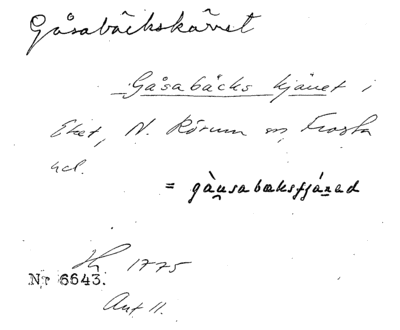 Gåsabäckskärret
Gåsabäcks kjäret i
Eket, N. Rörum sn, Frosta
hd.
= gàusabæksʃjáṟad
1775
Nr 6643.
Ant 11.